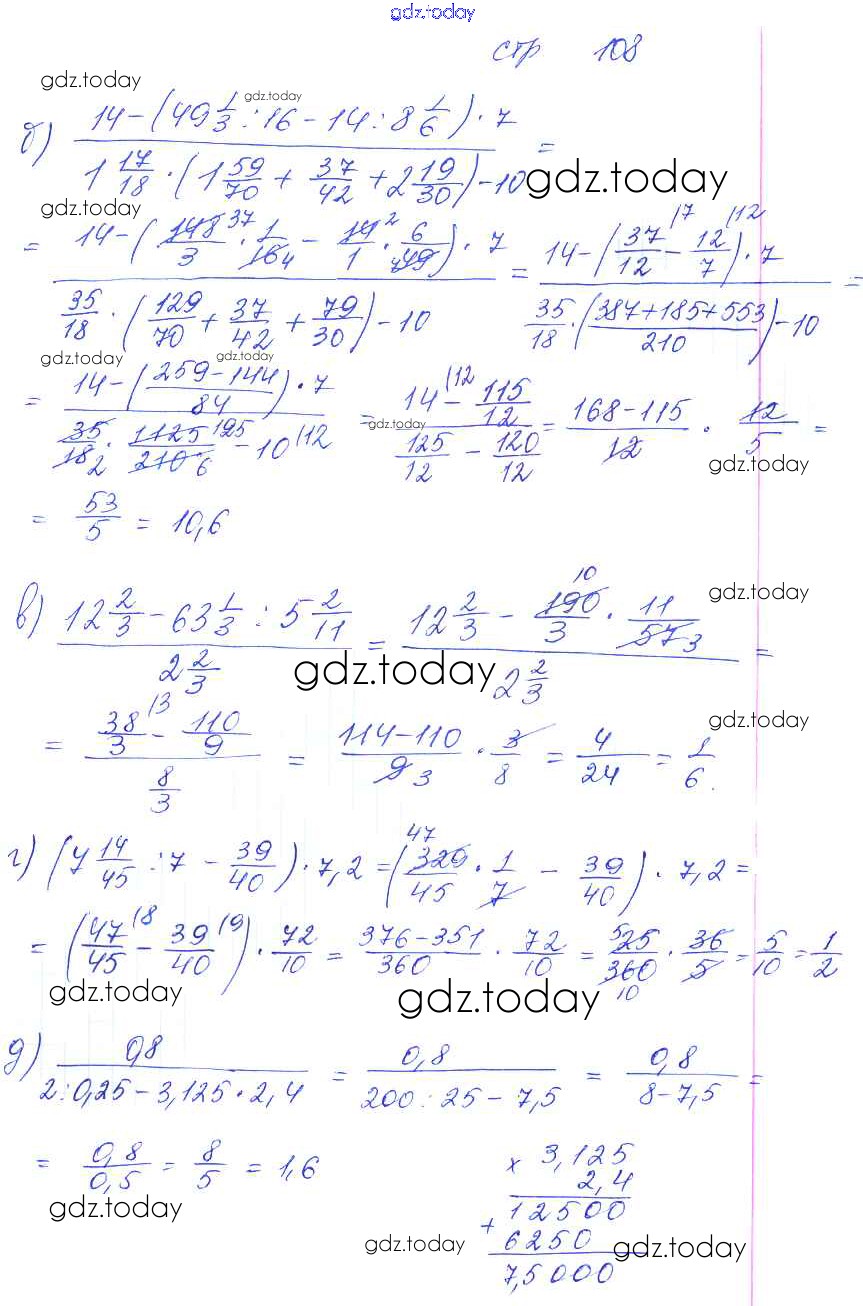 gdz.today
стр 108
gdz.today
gdz.today
б) (14-(49 1/3 : 16 - 14 : 8 1/6) · 7) / (1 17/18 · (1 59/70 + 37/42 + 2 19/30) - 10) =
gdz.today
gdz.today
= (14-(148/3 37 · 1/16 4 - 14/1 2 · 6/49 7) · 7) / (35/18 · (129/70 + 37/42 + 79/30) - 10) = (14-(37/12 (7 - 12/7 (12) · 7) / (35/18 · ((387+185+553)/210) - 10) =
gdz.today
gdz.today
= (14-((259-144)/84) · 7) / (35/18 2 · 1125/210 125 6 - 10 (12) = (14 (12 - 115/12) / (125/12 - 120/12) = (168-115)/12 · 12/5 =
gdz.today
gdz.today
= 53/5 = 10,6
в) (12 2/3 - 63 1/3 : 5 2/11) / (2 2/3) = (12 2/3 - 190/3 10 · 11/57 3) / (2 2/3) =
gdz.today
gdz.today
= (38/3 (3 - 110/9) / (8/3) = (114-110)/9 3 · 3/8 = 4/24 = 1/6.
gdz.today
г) (7 14/45 : 7 - 39/40) · 7,2 = (329/45 47 · 1/7 - 39/40) · 7,2 =
= (47/45 (8 - 39/40 (9) · 72/10 = (376-351)/360 · 72/10 = 25/360 5 10 · 36/5 = 5/10 = 1/2
gdz.today
gdz.today
д) 0,8 / (2:0,25-3,125·2,4) = 0,8 / (200:25-7,5) = 0,8 / (8-7,5) =
= 0,8/0,5 = 8/5 = 1,6
gdz.today
× 3,125
2,4
12500
+ 6250
7,5000
gdz.today
gdz.today